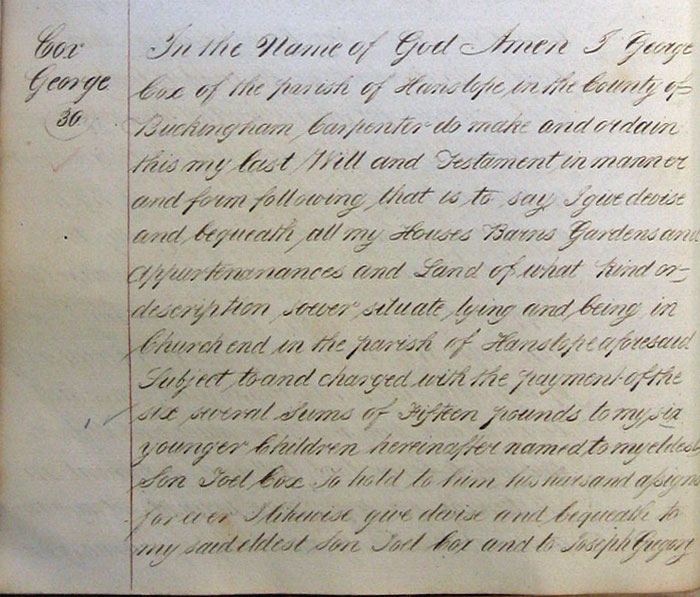 Cox
George
30
In the Name of God Amen I George
Cox of the parish of Hanslope in the County of
Buckingham Carpenter do make and ordain
this my last Will and Testament in manner
and form following that is to say I give devise
and bequeath all my Houses Barns Gardens and
appurtenanances and Land of what kind or
description soever situate lying and being in
Church end in the parish of Hanslope aforesaid
Subject to and charged with the payment of the
six several Sums of Fifteen pounds to my six
younger Children hereinafter named to my eldest
Son Joel Cox To hold to him his heirs and assigns
for ever I likewise give devise and bequeath to
my said eldest Son Joel Cox and to Joseph Gregory